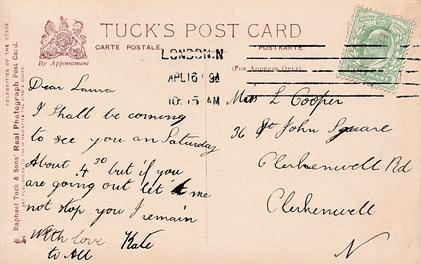 TUCK'S POST CARD
CARTE POSTALE
POSTKARTE
By Appointment
(FOR ADDRESS ONLY)
CELEBRITIES OF THE STAGE
Raphael Tuck & Sons' Real Photograph Post Card.
LONDON.N
APL 16
10.15 AM
Dear Laura
I shall be coming
to see you on Saturday
About 4 30 but if you
are going out let me
not stop you I remain
With love Kate
to All
Miss L Cooper
36 St John Square
Clerkenwell Rd
Clerkenwell
N